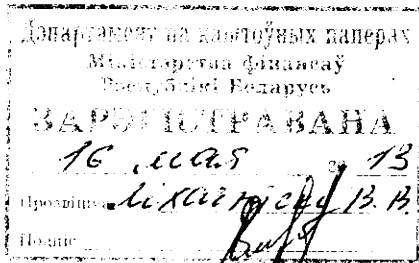 Дэпартамент па каштоўных паперах
Міністэрства фінансаў
Рэспублікі Беларусь
ЗАРЭГІСТРАВАНА
16 мая 20 13
Прозвішча В. В.
Подпіс